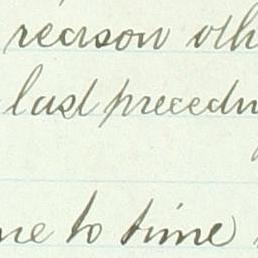 reason oth
last precedin
me to time